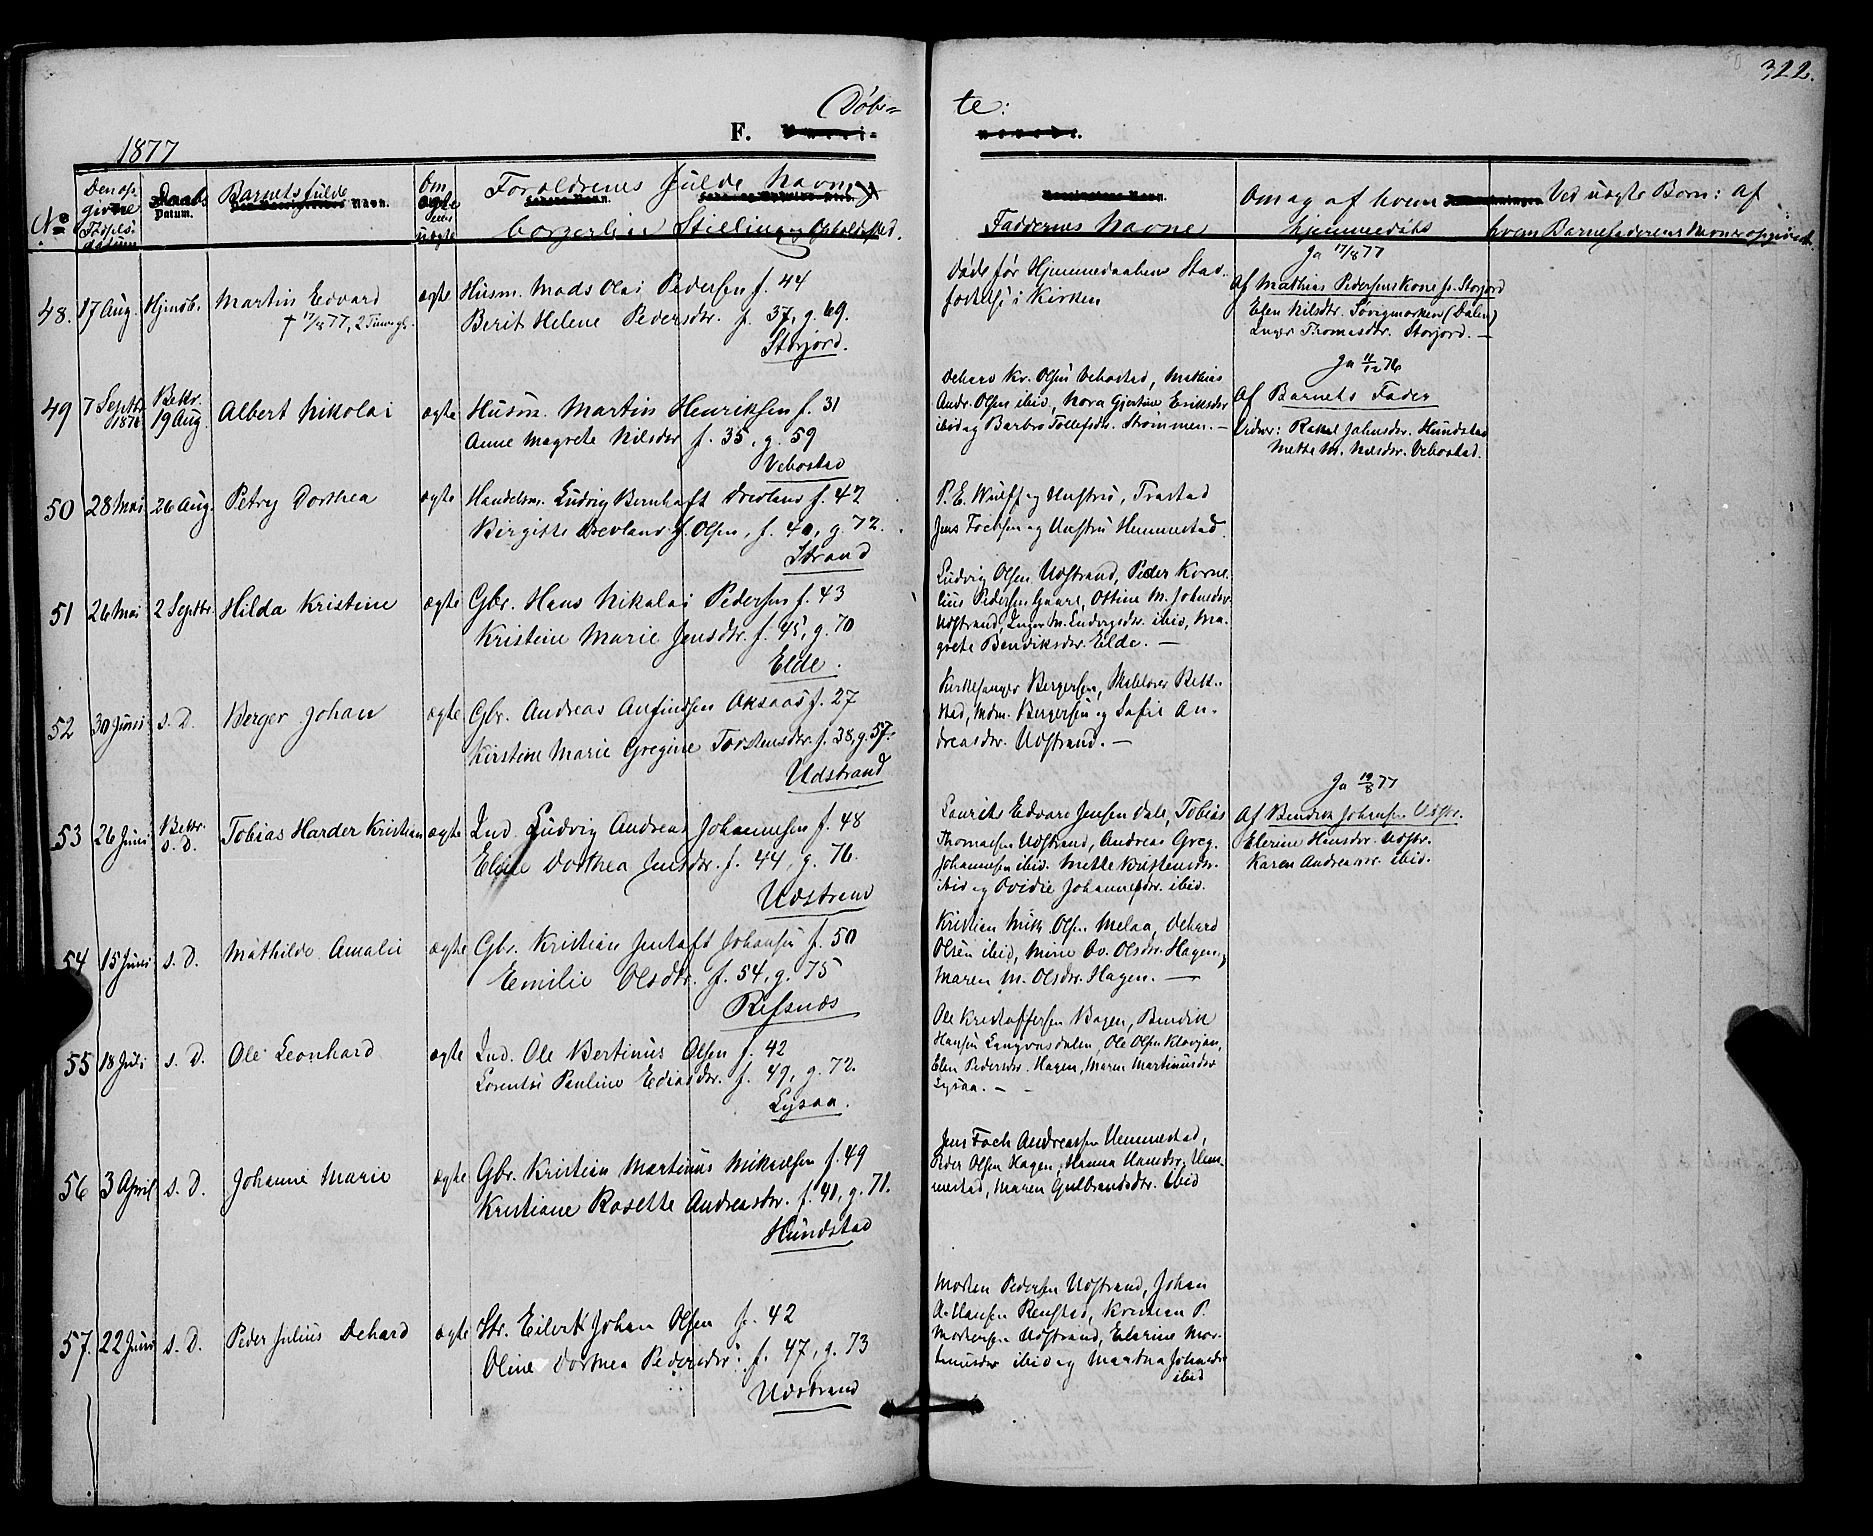 322.
Døb=
te:
F.
1877
No
Den op-
givne
Fødsels-
datum
Daabs
Datum.
Barnets fulde
Navn.
Om
ægte
eller
uægte
Forældrenes fulde Navn,
borgerlig Stilling og Opholdssted.
Faddernes Navne
Om og af hvem
hjemmedøbt
Ved uægte Børn: af
hvem Barnefaderens Navn er opgivet.
48. 17 Aug. Hjmdb. Martin Edvard
† 17/8 77, 2 Timer gl.
ægte Husm. Mads Olai Pedersen f. 44
Berit Helene Pedersdr. f. 37, g. 69.
Storjord.
Døde før Hjemmedaabens Stad-
fæstelse i Kirken
Ja 17/8 77
Af Mathias Pedersens Kone fr. Storjord
Elen Nilsdr. Sørvigmarken (Dalen)
Inger Thomasdr. Storjord. –
49 7 Septbr 1876 Bekr. 19 Aug. Albert Nikolai
ægte Husm. Martin Henriksen f. 31
Anne Magrete Nilsdr f. 35, g. 59
Vebostad
Dehard Kr. Olsen Vebostad, Mathias
Andr. Olsen ibid, Nora Gjertine Eriksdr
ibid og Barbro Tollefsdr. Strømmen. –
Ja 11/12 76
Af Barnets Fader
Vidner: Rakel Jakobsdr. Hundstad
Mette M. Nilsdr. Vebostad.
50 28 Mai 26 Aug. Petry Dorthea
ægte Handelsm. Ludvig Bernhoft Drevland f. 42
Birgitte Drevland f. Olsen, f. 40, g. 72.
Strand
P. E. Wulff og Hustru, Trastad
Jens Fochsen og Hustru Hemmestad.
51 26 Mai 2 Septbr. Hilda Kristine
ægte Gbr. Hans Nikolai Pedersen f. 43
Kristine Marie Jensdtr. f. 45, g. 70
Elde.
Ludvig Olsen Udstrand, Peder Korne-
lius Pedersen Gaare, Ottine M. Johnsdr
Udstrand, Inger M. Ludvigsdr. ibid, Ma-
grete Bendiksdr. Elde. –
52 30 Juni s. D. Berger Johan
ægte Gbr. Andreas Anfindsen Aksaas f. 27
Kirstine Marie Gregine Torstensdr. f. 38, g. 57.
Udstrand
Kirkesanger Bergersen, Bekk-
stad, Mdm. Bergersen og Sofie An-
dreasdr. Udstrand. –
53 26 Juni Bekr. s. D. Tobias Harder Kristian
ægte Ind. Ludvig Andreas Johannesen f. 48
Eline Dorthea Jensdr. f. 44, g. 76.
Udstrand
Laurits Edvard Jensen Dale, Tobias
Thomasen Udstrand, Andreas Greg.
Johannesen ibid. Mette Kristensdr.
ibid og Ovidie Johannesdr. ibid.
Ja 19/8 77
Af Bendik Johansen Udstr.
Elerine Hansdr. Udstr.
Karen Andreasdr. ibid.
54 15 Juni s. D. Mathilde Amalie
ægte Gbr. Kristian Jentoft Johansen f. 50
Emilie Olsdtr. f. 54, g. 75
Refsnæs
Kristian Mikk. Olsen Melaa, Dehard
Olsen ibid, Mine Ov. Olsdr. Hagen,
Maren M. Olsdr. Hagen. –
55 18 Juli s. D. Ole Leonhard
ægte Ind. Ole Bertinus Olsen f. 42
Lorentse Pauline Ediasdr. f. 49, g. 72.
Lysaa.
Ole Kristoffersen Bogen, Bendik
Hansen Langvasdalen, Ole Olsen Klovjan,
Elen Pedersdr. Hagen, Maren Martinusdr
Lysaa. –
56 3 April s. D. Johanne Marie
ægte Gbr. Kristian Martinus Mikkelsen f. 49
Kristiane Rosette Andreasdr. f. 41, g. 71.
Hundstad
Jens Foch Andreassen Hemmestad,
Peder Olsen Hagen, Hanna Hansdr. Hem-
mestad, Maren Gulbrandsdr. ibid
57. 22 Juni s. D. Peder Julius Dehard
ægte Str. Eilert Johan Olsen f. 42
Oline Dorthea Pedersdr. f. 47, g. 73
Udstrand
Morten Pedersen Udstrand, Johan
A. Hansen Renstad, Kristian P.
Mortensen Udstrand, Elerine Mor-
tensdr ibid og Martha Johnsdr
ibid